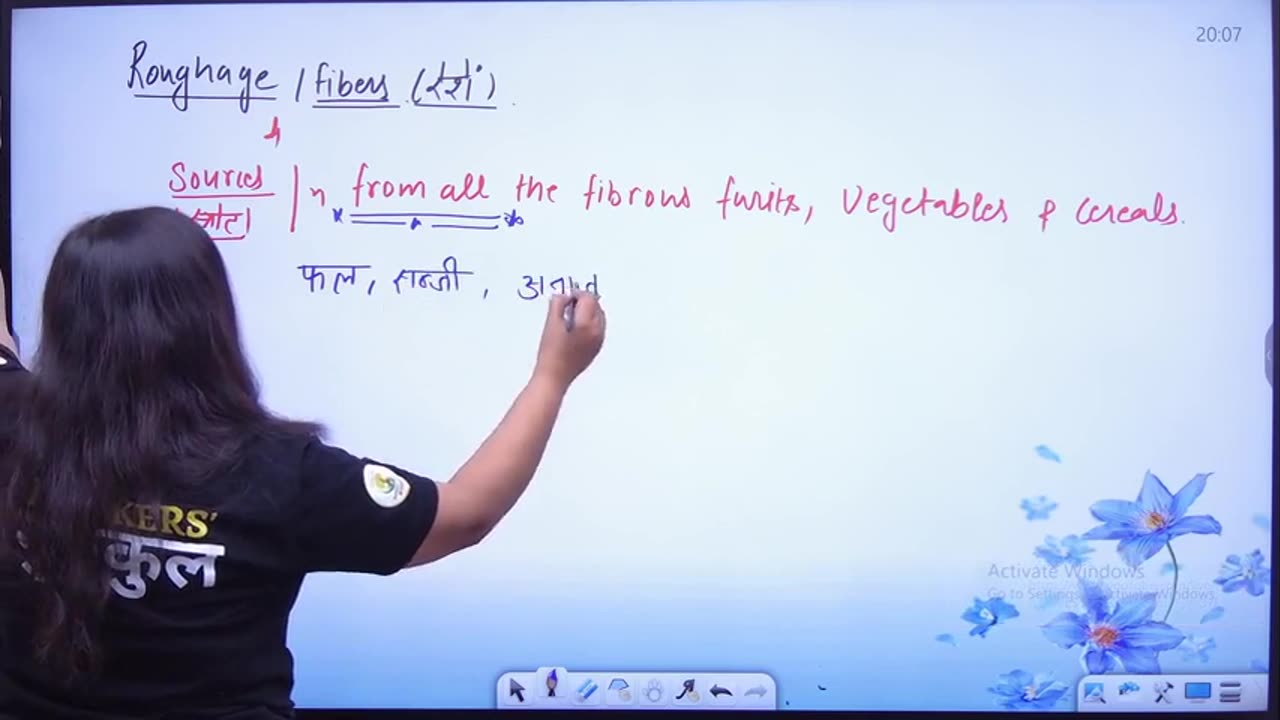 20:07
Roughage / fibers (रेशें)
Sources | n from all the fibrous furits, Vegetables & Cereals.
स्रोत
फल, सब्जी, अनाज
KERS'
कुल
Activate Windows
Go to Settings to activate Windows.